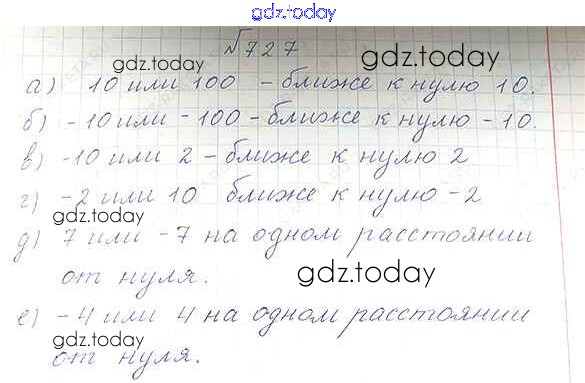 gdz.today
№727
gdz.today
gdz.today
а) 10 или 100 - ближе к нулю 10.
б) -10 или -100 - ближе к нулю -10.
в) -10 или 2 - ближе к нулю 2
г) -2 или 10 ближе к нулю -2
gdz.today
д) 7 или -7 на одном расстоянии
от нуля.
gdz.today
е) -4 или 4 на одном расстоянии
gdz.today
от нуля.